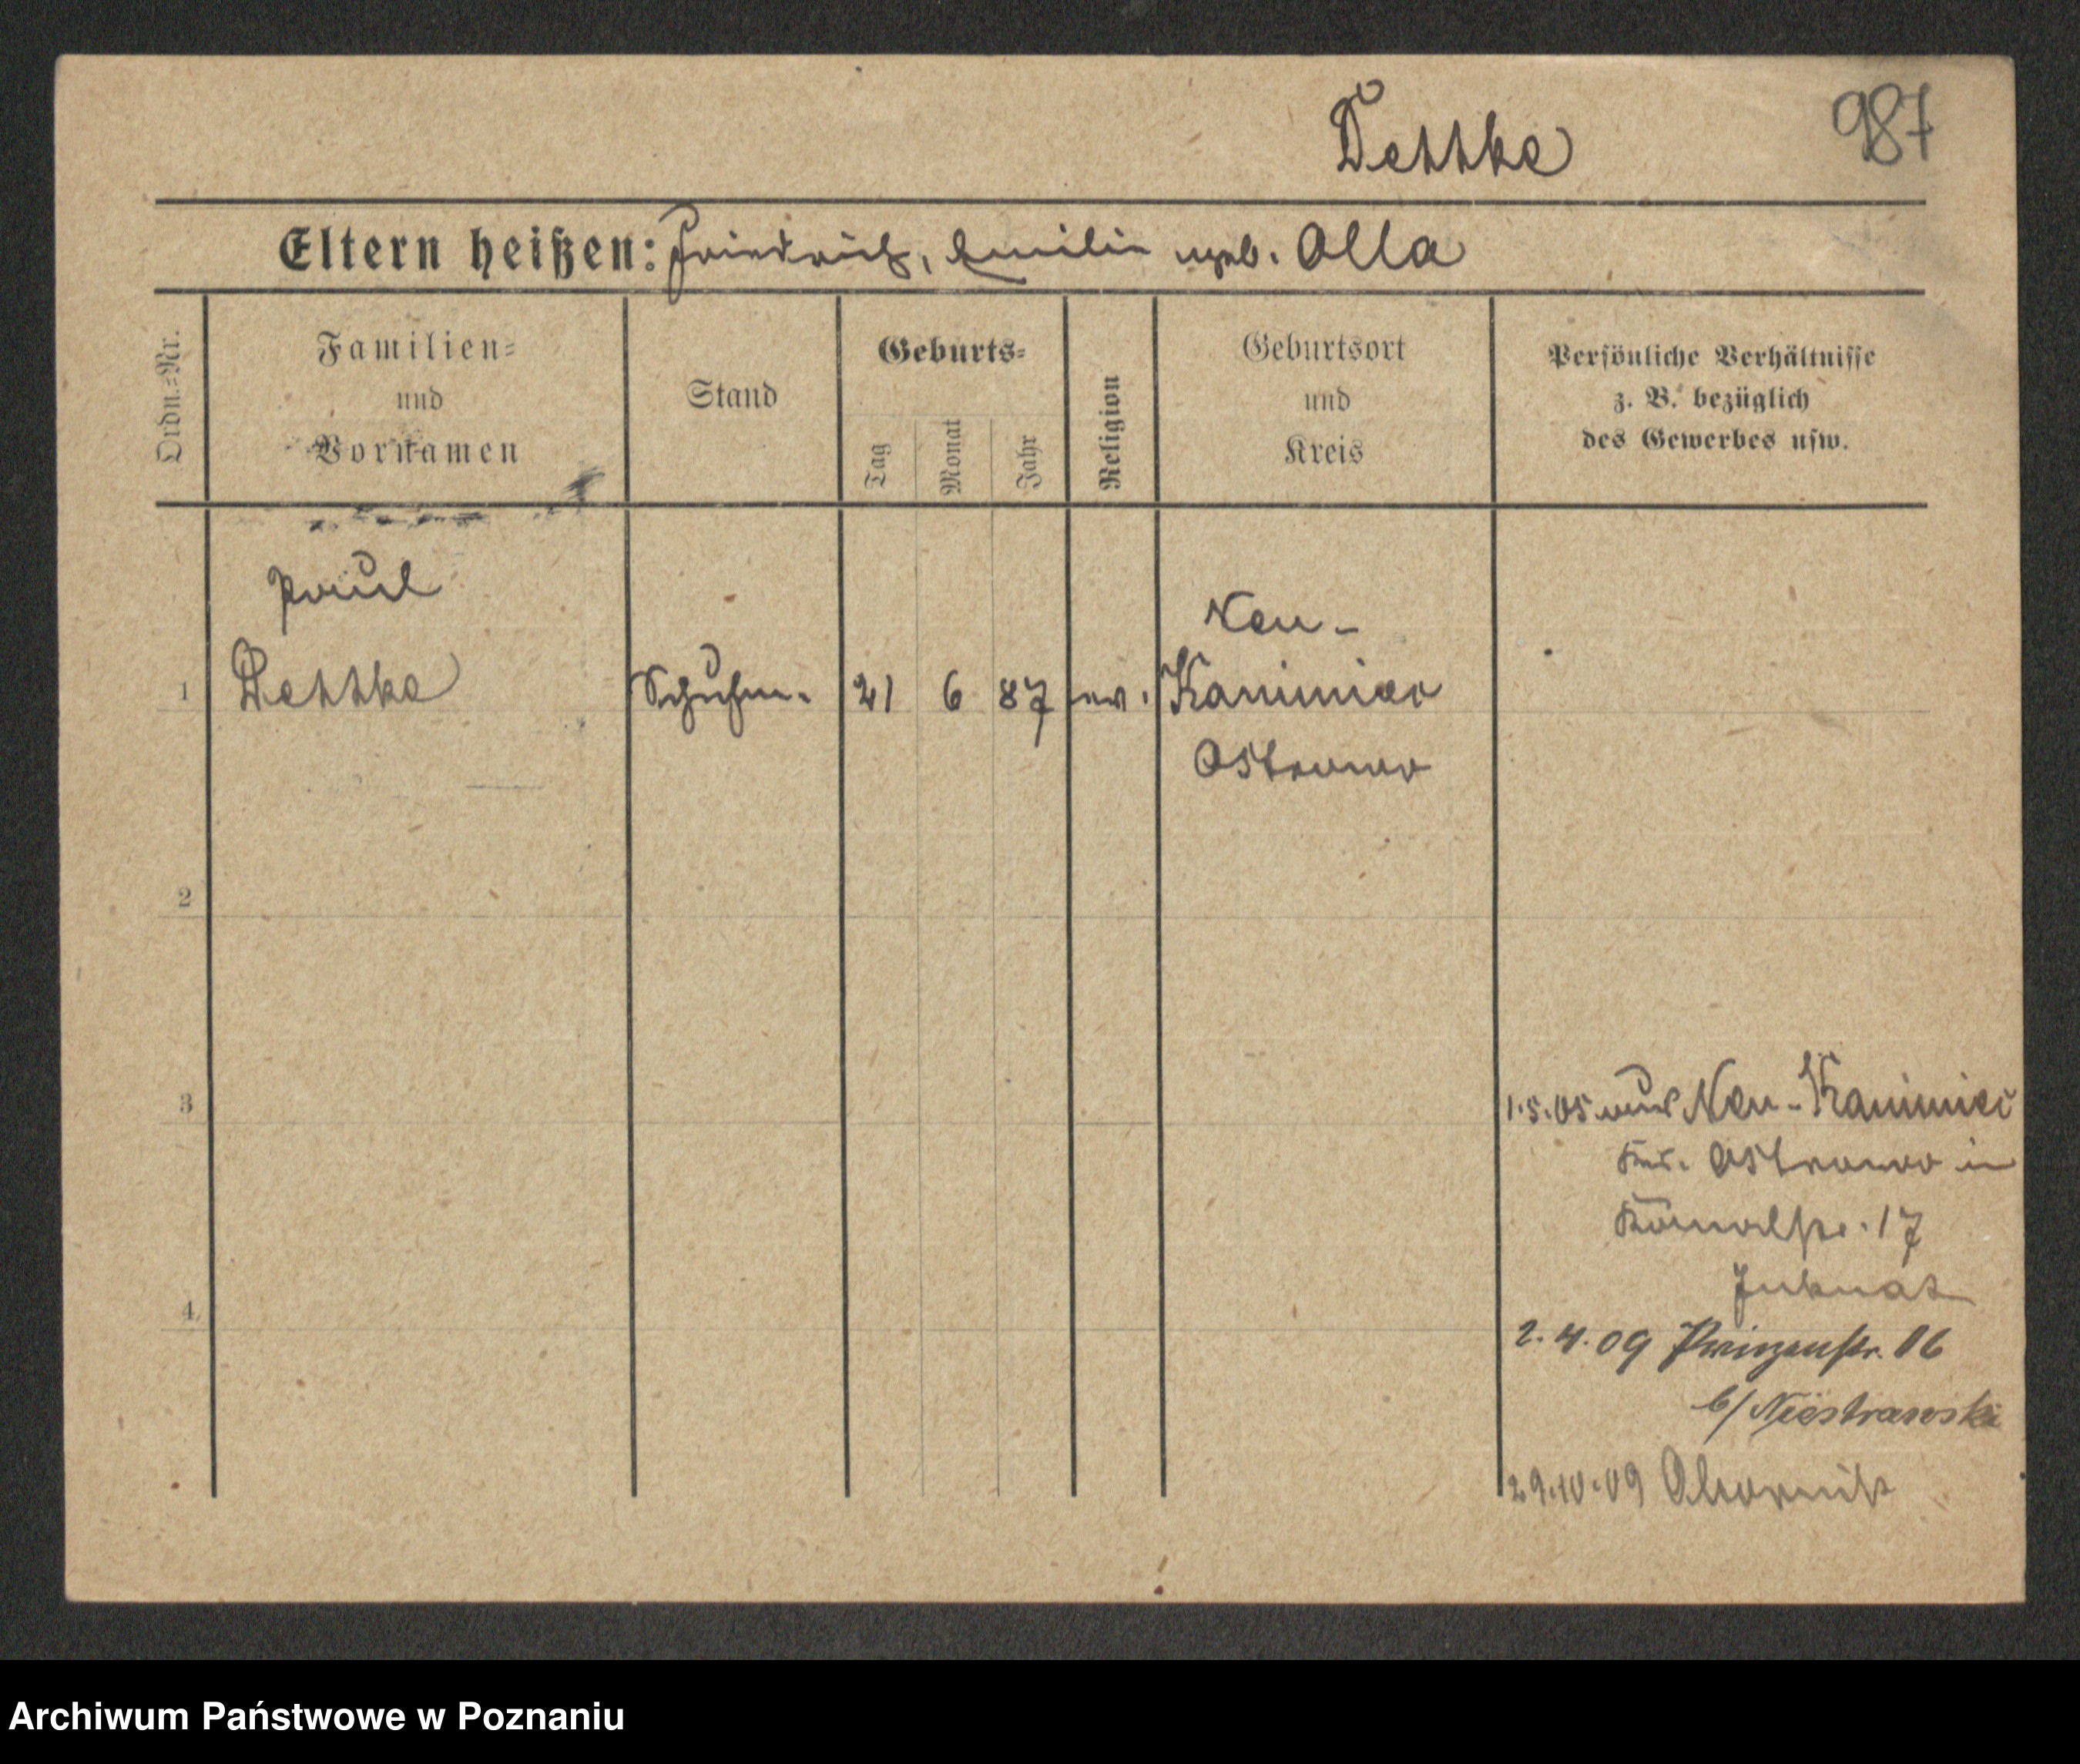 Dettke
987
Eltern heißen: Friedrich, Emilie geb. Olla
Ordn.=Nr.
Familien=
und
Vornamen
Stand
Geburts=
Tag
Monat
Jahr
Religion
Geburtsort
und
Kreis
Persönliche Verhältnisse
z. B. bezüglich
des Gewerbes usw.
Paul
1 Dettke
Schuhm.
21 6 87
ev.
Neu-
Kaminiec
Ostrowo
2
3
4
1.5.05 aus Neu-Kaminiec
Krs. Ostrowo in
Kanalstr. 17
2.4.09 Prinzenstr. 16
b/ Niestrawski
29.10.09 Obornik
Archiwum Państwowe w Poznaniu